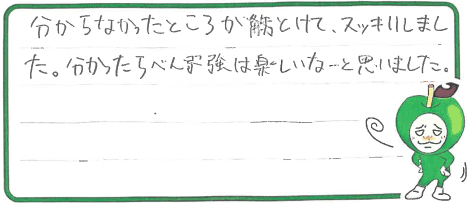 分からなかったところが解とけて、スッキリしまし
た。分かったらべん強は楽しいなーと思いました。